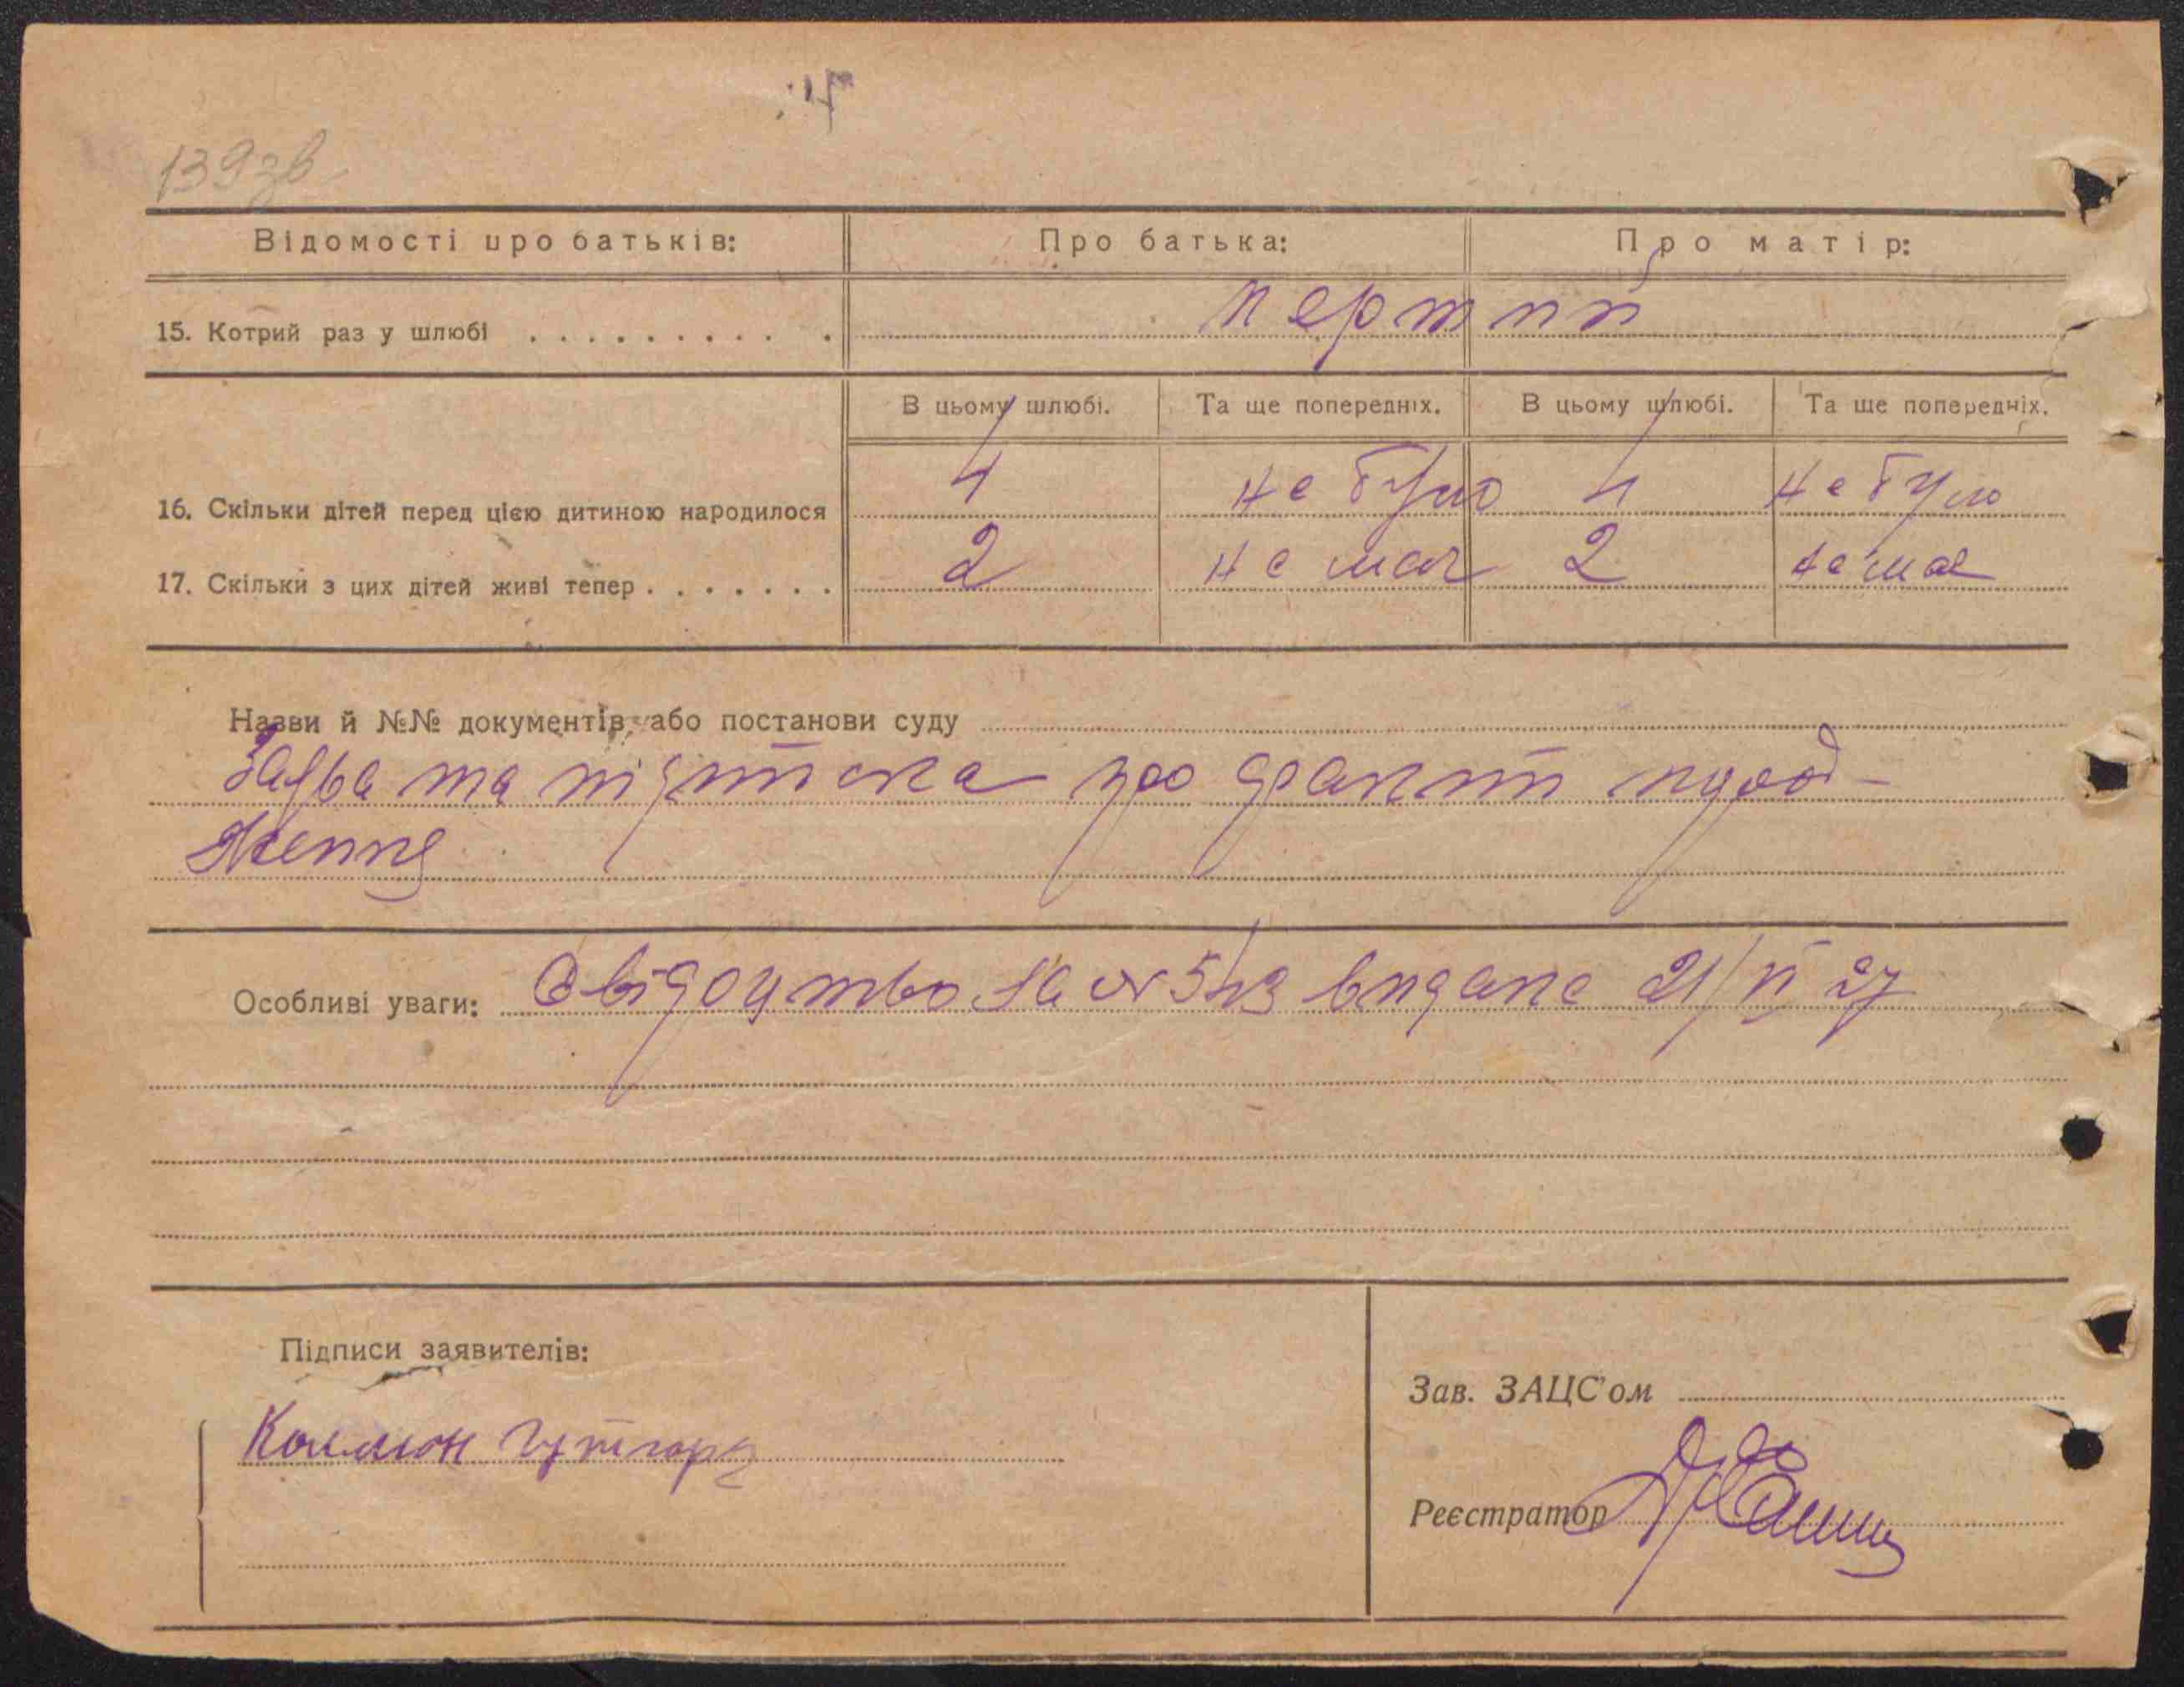 139зв
Відомості про батьків: Про батька: Про матір:
15. Котрий раз у шлюбі . . . . . . . . . . перший
В цьому шлюбі. Та ще попередніх. В цьому шлюбі. Та ще попередніх.
16. Скільки дітей перед цією дитиною народилося 4 не було 4 не було
17. Скільки з цих дітей живі тепер . . . . . . . 2 не має 2 немає
Назви й №№ документів або постанови суду
Заява та підписка про факт народ-
ження
Особливі уваги: Свідоцтво за № 543 видане 21/ 27
Підписи заявителів:
Зав. ЗАЦС'ом
Реєстратор